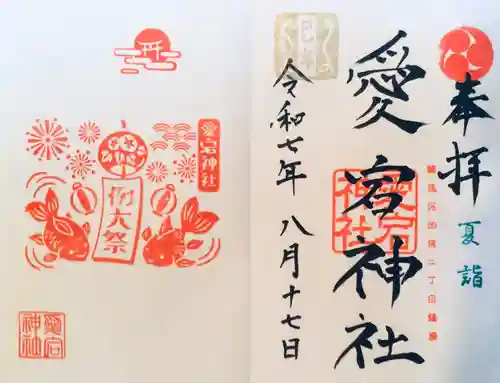 奉拝
夏詣
二丁目鎮座
愛宕神社
愛宕神社
令和七年 八月十七日
愛宕神社
例大祭
愛宕神社